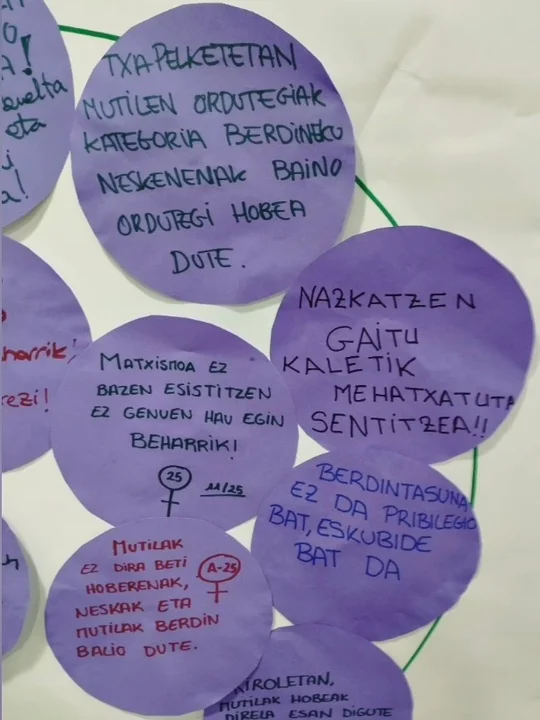 O
A!
buelta
eta
i
a!
TXAPELKETETAN
MUTILEN ORDUTEGIAK
KATEGORIA BERDINEKO
NESKENENAK BAINO
ORDUTEGI HOBEA
DUTE.
NAZKATZEN
GAITU
KALETIK
MEHATXATUTA
SENTITZEA!!
harrik!
rezi!
MATXISMOA EZ
BAZEN ESISTITZEN
EZ GENUEN HAU EGIN
BEHARRIK!
25
11/25
BERDINTASUNA
EZ DA PRIBILEGIO
BAT, ESKUBIDE
BAT DA
MUTILAK
EZ DIRA BETI
HOBERENAK,
NESKAK ETA
MUTILAK BERDIN
BALIO DUTE.
A-25
KIROLETAN,
MUTILAK HOBEAK
DIRELA ESAN DIGUTE